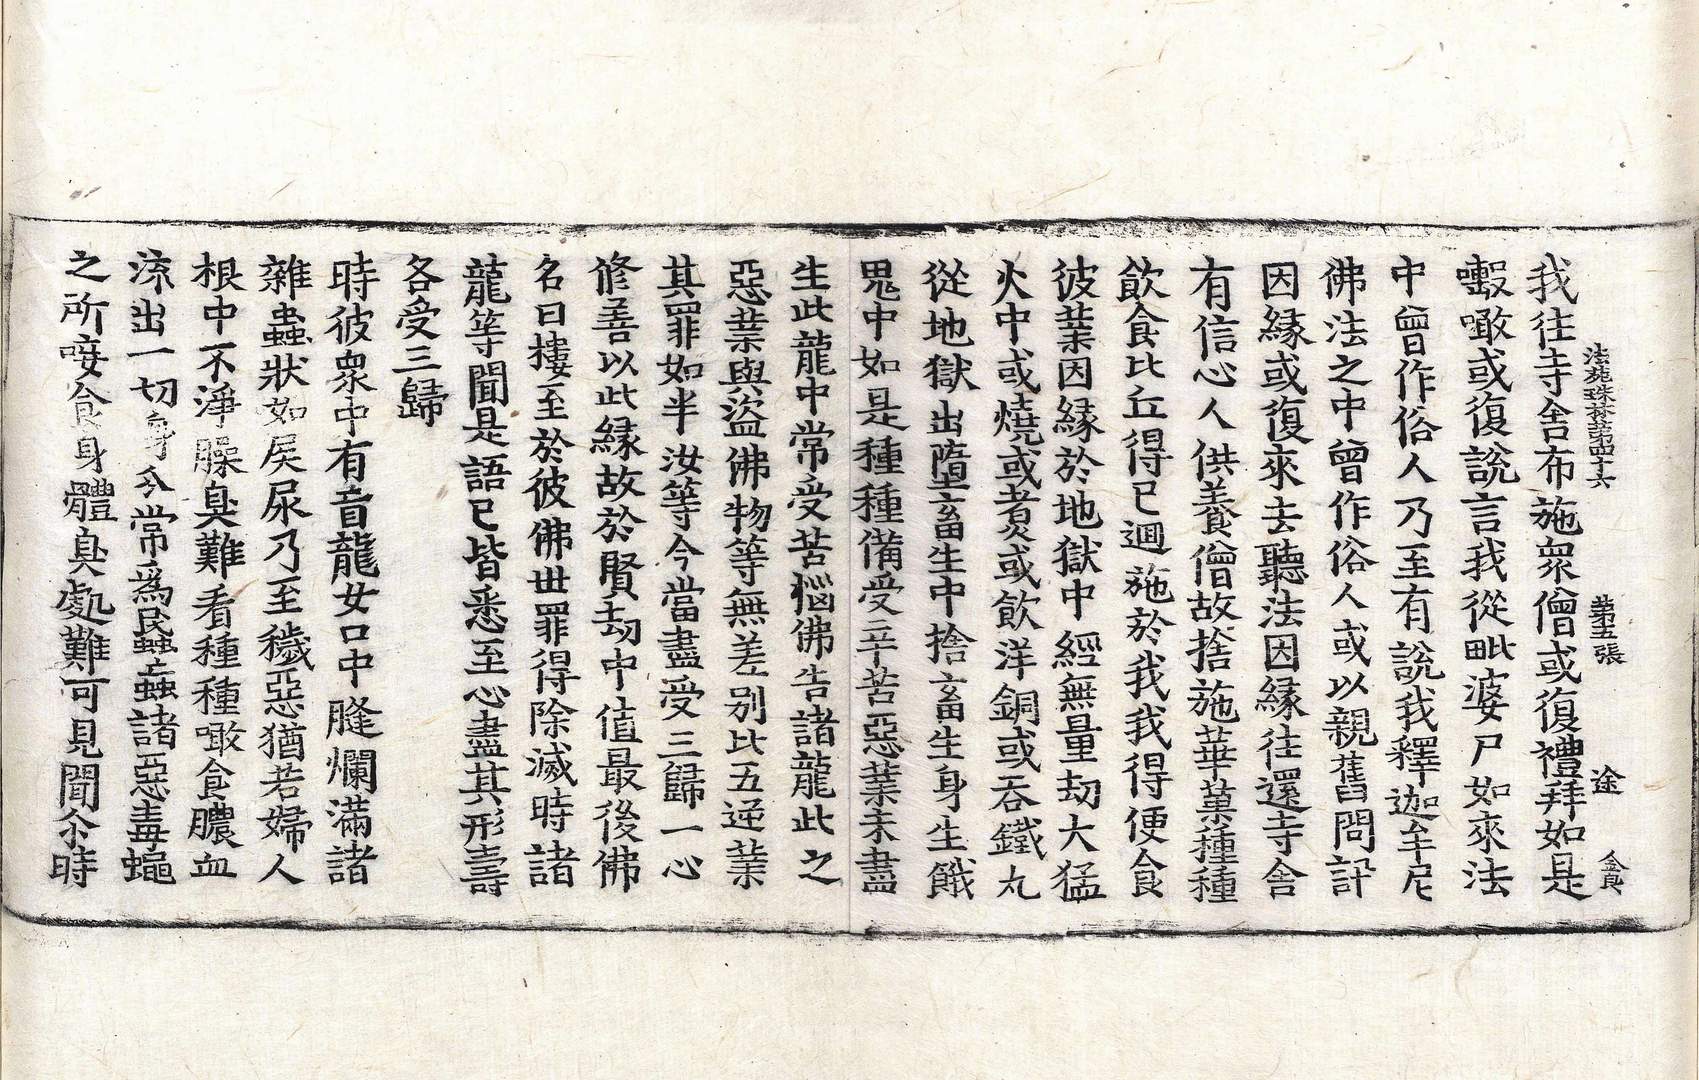 法苑珠林第四十六 第五張 途 金良
我往寺舍布施衆僧或復禮拜如是
噉噉或復說言我從毗婆尸如來法
中曾作俗人乃至有說我釋迦牟尼
佛法之中曾作俗人或以親舊問訃
因緣或復來去聽法因緣往還寺舍
有信心人供養僧故捨施華菓種種
飮食比丘得已迴施於我我得便食
彼業因緣於地獄中經無量劫大猛
火中或燒或煮或飮洋銅或吞鐵丸
從地獄出墮畜生中捨畜生身生餓
鬼中如是種種備受辛苦惡業未盡
生此龍中常受苦惱佛告諸龍此之
惡業與盜佛物等無差別比五逆業
其罪如半汝等今當盡受三歸一心
修善以此緣故於賢劫中值最後佛
名曰樓至於彼佛世罪得除滅時諸
龍等聞是語已皆悉至心盡其形壽
各受三歸
時彼衆中有盲龍女口中膖爛滿諸
雜蟲狀如屎尿乃至穢惡猶若婦人
根中不淨臊臭難看種種噉食膿血
流出一切身分常爲蚊蝱諸惡毒蠅
之所唼食身體臭處難可見聞尒時